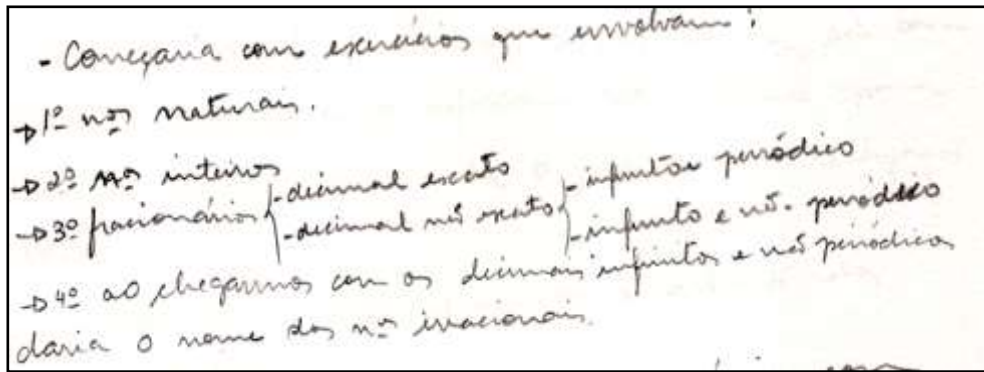 - Começaria com exercícios que envolvam:
→ 1º nos naturais.
→ 2º nos inteiros
→ 3º fracionários { - decimal exato
- decimal não exato { - infinito e periódico
- infinito e não - periódico
→ 4º ao chegarmos com os decimais infinitos e não periódicos
daria o nome dos nos irracionais.